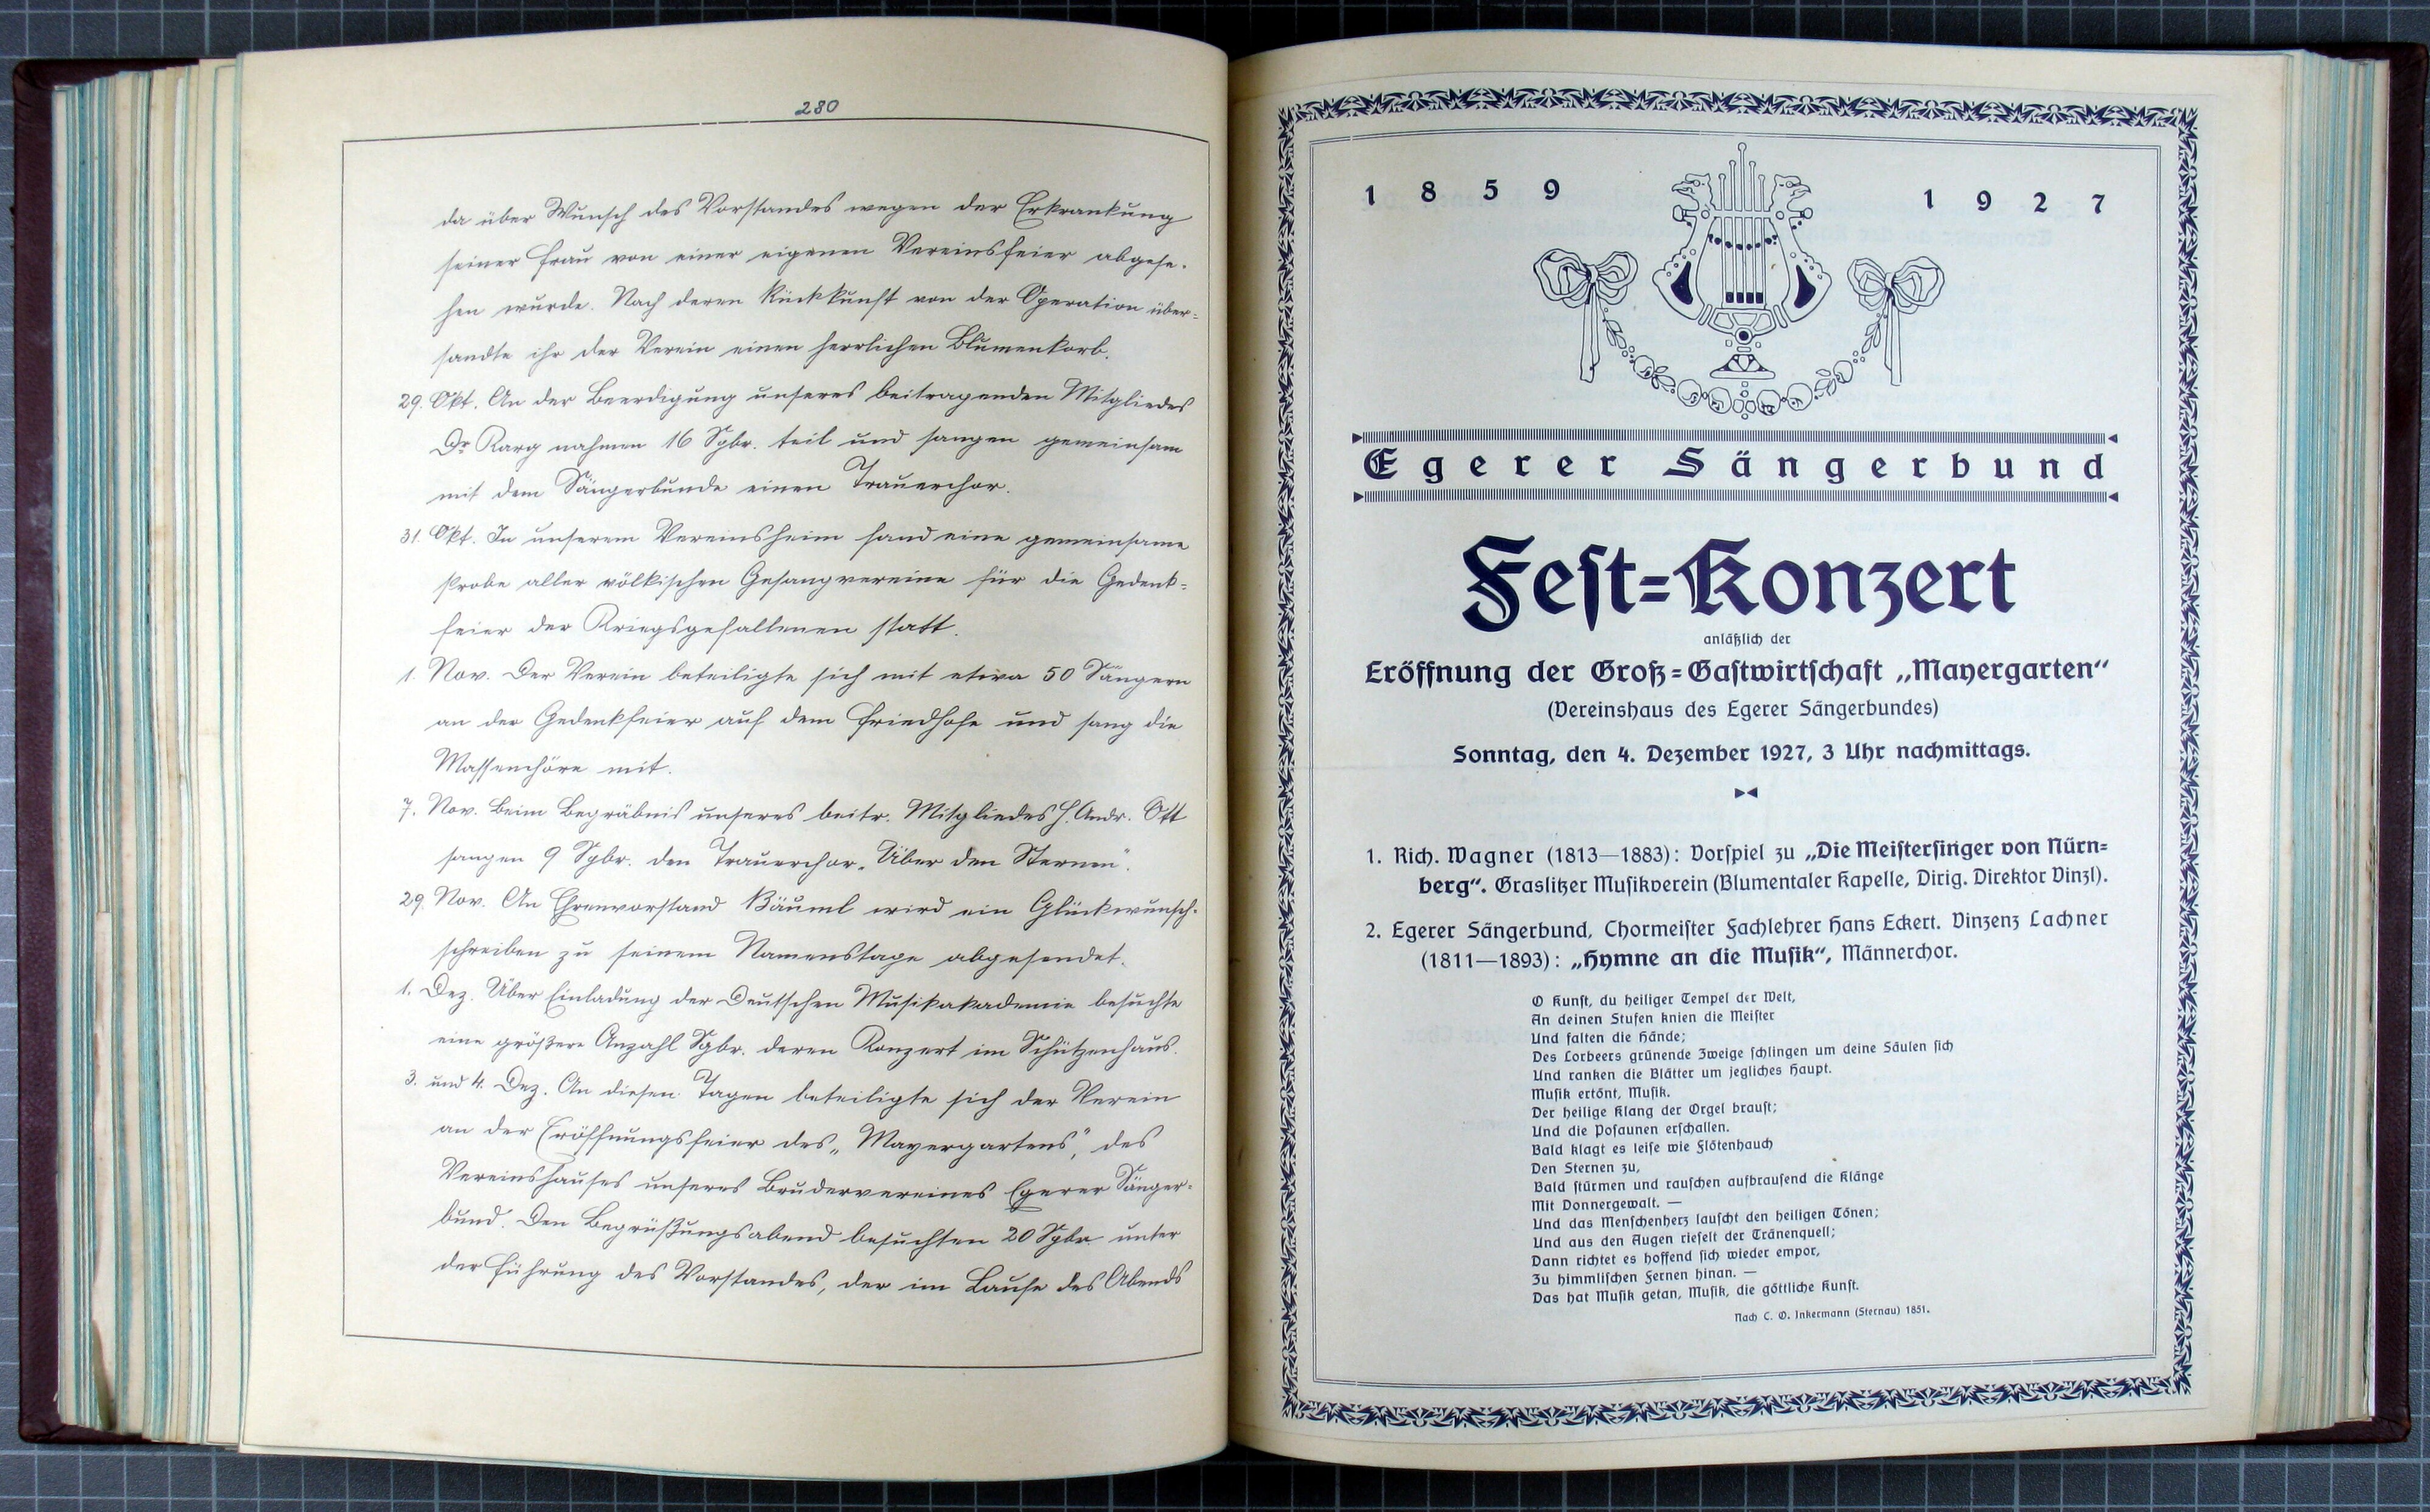 280
da über Wunsch des Vorstandes wegen der Erkrankung
seiner Frau von einer eigenen Vereinsfeier abgese-
hen wurde. Nach deren Rückkunft von der Operation über-
sandte ihr der Verein einen herrlichen Blumenkorb.
29. Okt. An der Beerdigung unseres beitragenden Mitgliedes
Dr Karg nahmen 16 Sgbr. teil und sangen gemeinsam
mit dem Sängerbunde einen Trauerchor.
31. Okt. In unserem Vereinsheim fand eine gemeinsame
Probe aller völkischen Gesangvereine für die Gedenk-
feier der Kriegsgefallenen statt.
1. Nov. Der Verein beteiligte sich mit etwa 50 Sängern
an der Gedenkfeier auf dem Friedhofe und sang die
Massenchöre mit.
7. Nov. Beim Begräbnis unseres beitr. Mitgliedes H. Andr. Ott
sangen 9 Sgbr. den Trauerchor „Über den Sternen".
29. Nov. An Ehrenvorstand Bäuml wird ein Glückwunsch-
schreiben zu seinem Namenstage abgesendet.
1. Dez. Über Einladung der Deutschen Musikakademie besuchte
eine größere Anzahl Sgbr. deren Konzert im Schützenhaus.
3. und 4. Dez. An diesen Tagen beteiligte sich der Verein
an der Eröffnungsfeier des „Mayergartens", des
Vereinshauses unseres Brudervereines Egerer Sänger-
bund. Den Begrüßungsabend besuchten 20 Sgbr. unter
der Führung des Vorstandes, der im Laufe des Abends
1859 1927
Egerer Sängerbund
Fest=Konzert
anläßlich der
Eröffnung der Groß=Gastwirtschaft „Mayergarten"
(Vereinshaus des Egerer Sängerbundes)
Sonntag, den 4. Dezember 1927, 3 Uhr nachmittags.
1. Rich. Wagner (1813—1883): Vorspiel zu „Die Meistersinger von Nürn=
berg". Graslitzer Musikverein (Blumentaler Kapelle, Dirig. Direktor Vinzl).
2. Egerer Sängerbund, Chormeister Fachlehrer Hans Eckert. Vinzenz Lachner
(1811—1893): „Hymne an die Musik", Männerchor.
O Kunst, du heiliger Tempel der Welt,
An deinen Stufen knien die Meister
Und falten die Hände;
Des Lorbeers grünende Zweige schlingen um deine Säulen sich
Und ranken die Blätter um jegliches Haupt.
Musik ertönt, Musik.
Der heilige Klang der Orgel braust;
Und die Posaunen erschallen.
Bald klagt es leise wie Flötenhauch
Den Sternen zu,
Bald stürmen und rauschen aufbrausend die Klänge
Mit Donnergewalt. —
Und das Menschenherz lauscht den heiligen Tönen;
Und aus den Augen rieselt der Tränenquell;
Dann richtet es hoffend sich wieder empor,
Zu himmlischen Fernen hinan. —
Das hat Musik getan, Musik, die göttliche Kunst.
Nach C. O. Inkermann (Sternau) 1851.